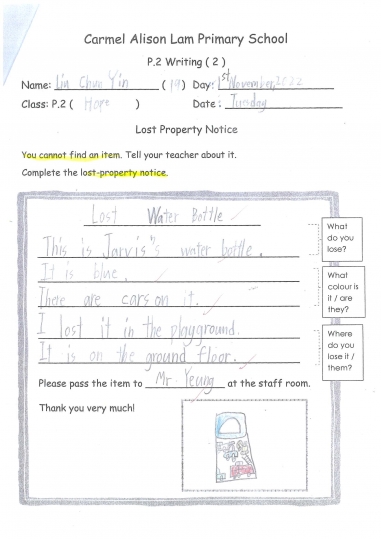 Carmel Alison Lam Primary School
P.2 Writing ( 2 )
Name: Lin Chun Yin ( 19 ) Day: 1st November, 2022
Class: P.2 ( Hope ) Date : Tuesday
Lost Property Notice
You cannot find an item. Tell your teacher about it.
Complete the lost-property notice.
Lost Water Bottle
This is Jarvis's water bottle.
It is blue.
There are cars on it.
I lost it in the playground.
It is on the ground floor.
What do you lose?
What colour is it / are they?
Where do you lose it / them?
Please pass the item to Mr. Yeung at the staff room.
Thank you very much!